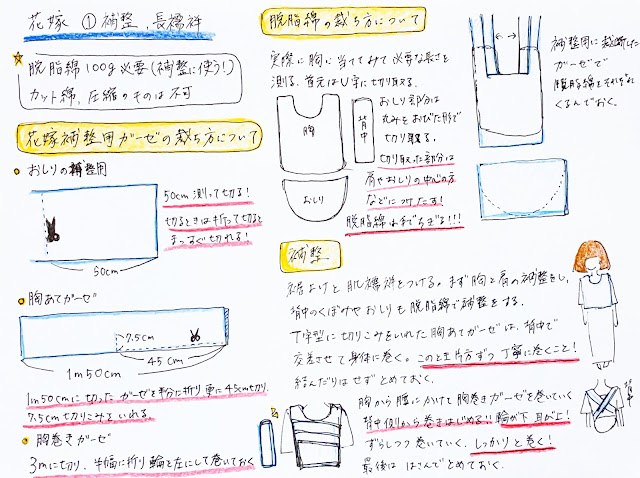 花嫁 ①補整、長襦袢
脱脂綿100g必要(補整に使う!)
カット綿、圧縮のものは不可
花嫁補整用ガーゼの裁ち方について
おしりの補整用
50cm測って切る!
切るときは折って切ると
まっすぐ切れる!
50cm
胸あてガーゼ
7.5cm
45cm
1m50cm
1m50cmに切ったガーゼを半分に折り更に45cm切り、
7.5cm切りこみをいれる。
胸巻きガーゼ
3mに切り、半幅に折り輪を左にして巻いておく
脱脂綿の裁ち方について
実際に胸に当ててみて必要な長さを
測る。首元はU字に切り取る。
胸
背中
おしり
おしり部分は
丸みをおびた形で
切り取る。
切り取った部分は
肩やおしりの中心の方
などにつけたす!
脱脂綿は手でちぎる!!!
補整用に裁断した
ガーゼで
脱脂綿をそれぞれ
くるんでおく。
補整
裾よけと肌襦袢をつける。まず胸と肩の補整をし、
背中のくぼみやおしりも脱脂綿で補整をする。
丁字型に切りこみをいれた胸あてガーゼは、背中で
交差させて身体に巻く。このとき片方ずつ丁寧に巻くこと!
結んだりはせずとめておく。
胸から腰にかけて胸巻きガーゼを巻いていく
背中側から巻きはじめる!!輪が下耳が上!
ずらしつつ巻いていく。しっかりと巻く!
最後ははさんでとめておく。
背中